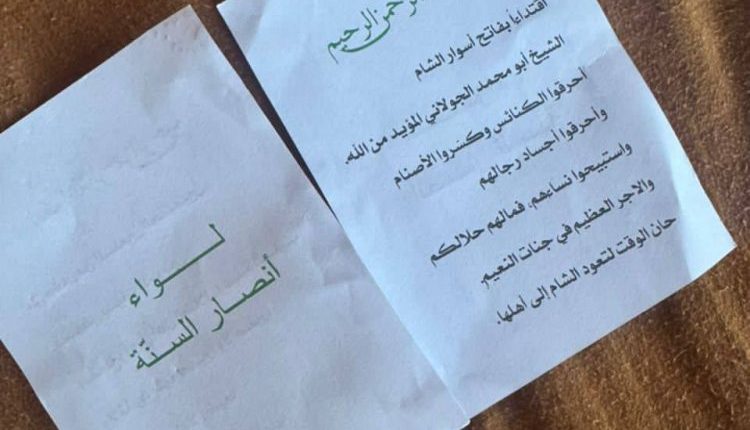 الرحمن الرحيم
اقتداءاً بفاتح أسوار الشام
الشيخ أبو محمد الجولاني المؤيد من الله.
أحرقوا الكنائس وكسروا الأصنام
وأحرقوا أجساد رجالهم
واستبيحوا نساءهم، فمالهم حلالكم
والاجر العظيم في جنات النعيم.
حان الوقت لتعود الشام إلى أهلها.
لـــواء
أنصار السنّة